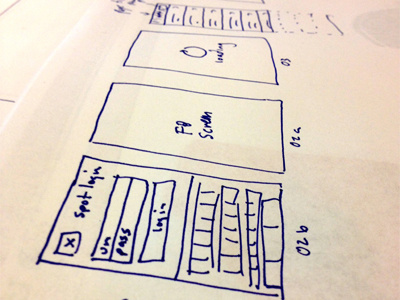 loading
03
FB
Screen
02a
x
Spot login
un
pass
login
02b